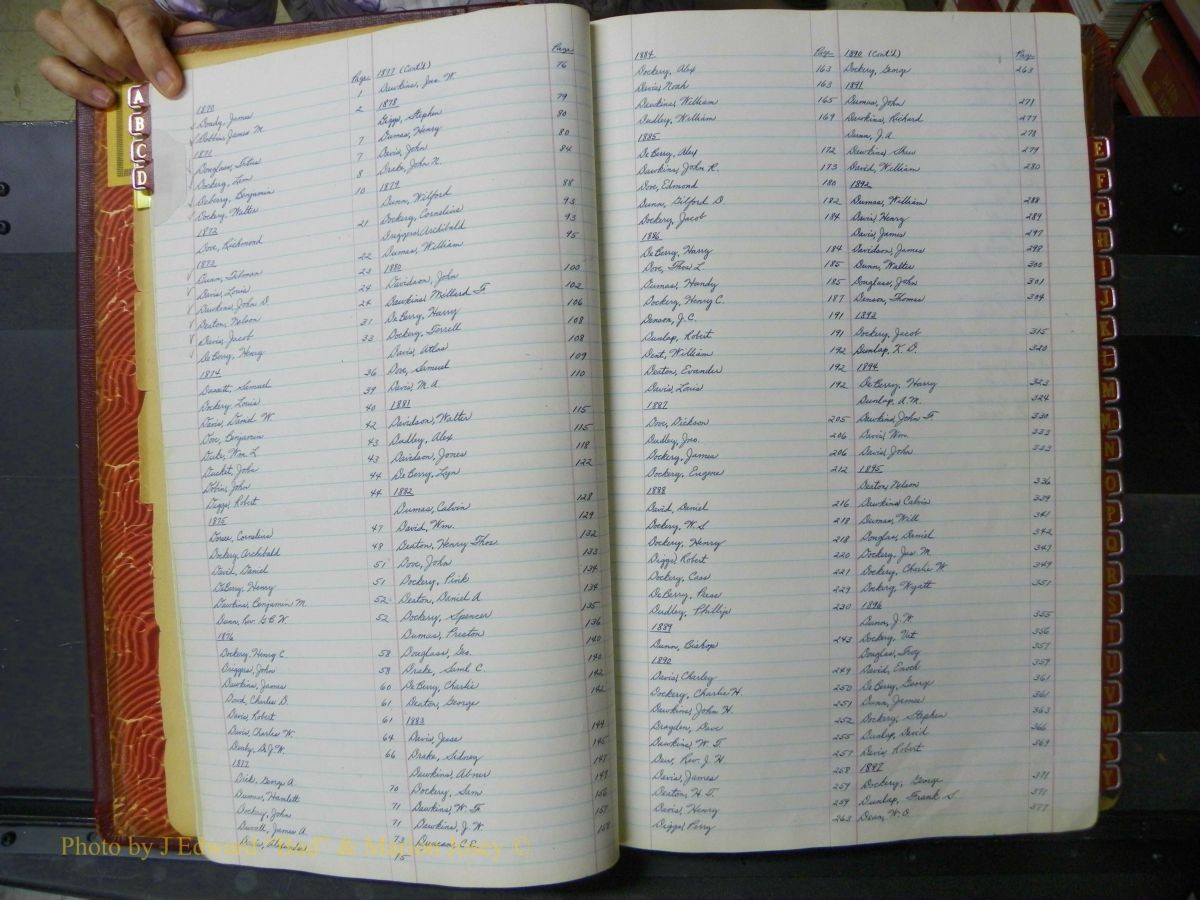 1870
Dowdy, James 1
Dobbins, James M. 2
1871
Douglass, Titus 7
Dockery, Lem 7
Deberry, Benjamin 8
Dockery, Walter 10
1872
Dove, Richmond 21
1873
Dunn, Tilman 22
Davis, Louis 23
Dawkins, John D. 24
Deaton, Nelson 24
Davis, Jacob 31
DeBerry, Henry 33
1874
Samuel 36
Dockery, Louis 39
Davis, David W. 40
Dove, Benjamin 42
Duke, Wm. L. 43
John 43
Dobin, John 44
Diggs, Robert 44
1875
Cornelius 47
Dockery, Archibald 48
David, Daniel 51
DeBerry, Henry 51
Dawkins, Benjamin M. 52
Dunn, Rev. G.C.W. 52
1876
Dockery, Henry C. 58
John 58
Dawkins, James 60
Charles D. 61
Davis, Robert 61
Davis, Charles W. 64
66
1877
Dick, George A. 70
Dumas, Hamlett 71
Dockery, John 71
Duvall, James A. 73
Davis, 75
1877 (Cont'd) Page
Dawkins, Jno. W. 76
1878
Diggs, Stephen 79
Dumas, Henry 80
Davis, John 80
Drake, John N. 84
1879
Dunn, Wilford 88
Dockery, Cornelius 93
Archibald 93
Dumas, William 95
1880
Davidson, John 100
Dawkins, Millard F. 102
DeBerry, Harry 106
Dockery, Terrell 108
Davis, Atlas 108
Dove, Samuel 109
Davis, M.A. 110
1881
Davidson, Walter 115
Dudley, Alex 115
Davidson, Jones 118
DeBerry, Lyn 122
1882
Dumas, Calvin 128
David, Wm. 129
Deaton, Henry Thos. 132
Dove, John 133
Dockery, Pink 134
Deaton, Daniel A. 134
Dockery, Spencer 135
Dumas, Preston 136
Douglass, Geo. 140
Drake, Saml C. 140
DeBerry, Charlie 142
Deaton, George 142
1883
Davis, Jesse 144
Drake, Sidney 145
Dawkins, Abner 147
Dockery, Sam 149
Dawkins, W. F. 156
Dawkins, J. W. 157
Duncan, C.E. 158
1884 Page
Dockery, Alex 163
Davis, Noah 163
Dawkins, William 165
Dudley, William 169
1885
DeBerry, Alex 172
Dawkins, John R. 173
Dove, Edmond 180
Dunn, Gilford D. 182
Dockery, Jacob 184
1886
DeBerry, Harry 184
Dove, Thos. L. 185
Dumas, Handy 185
Dockery, Henry C. 187
Denson, J.C. 191
Dunlap, Robert 191
Dent, William 192
Deaton, Evander 192
Davis, Louis 192
1887
Dove, Dickson 205
Dudley, Jno. 206
Dockery, James 206
Dockery, Eugene 212
1888
David, Daniel 216
Dockery, W. S. 218
Dockery, Henry 218
Diggs, Robert 220
Dockery, Cass 221
DeBerry, Press 229
Dudley, Phillip 230
1889
Dunn, Bishop 243
1890
Davis, Charley 249
Dockery, Charlie H. 250
Dawkins, John H. 251
Dave 252
Dawkins, W. T. 255
Rev. J. H. 257
Davis, James 258
Deaton, H. T. 259
Davis, Henry 259
Diggs, Perry 263
1890 (Cont'd) Page
Dockery, George 263
1891
Dumas, John 271
Dawkins, Richard 277
Dunn, J. A. 278
Dawkins, 279
David, William 280
1892
Dumas, William 288
Davis, Henry 289
Davis, James 297
Davidson, James 298
Dunn, Walter 300
Douglass, John 301
Denson, Thomas 304
1893
Dockery, Jacob 315
Dunlap, K. D. 320
1894
DeBerry, Harry 323
Dunlap, A.M. 324
Dawkins, John F. 330
Davis, Wm. 333
Davis, John 333
1895
Deaton, Nelson 336
Dawkins, Calvin 339
Dumas, Will 341
Douglas, Daniel 342
Dockery, Jas. M. 347
Dockery, Charlie W. 349
Dockery, Wyatt 351
1896
Dunn, J. W. 355
Dockery, 356
Douglas, Troy 357
David, Enoch 359
DeBerry, George 361
Dunn, James 361
Dockery, Stephen 363
Dunlap, David 366
Davis, Robert 369
1897
Dockery, George 371
Dunlap, Frank S. 371
Dean, W. O. 377
A
B
C
D
E
F
G
H
I
J
K
L
M
Mc
N
O
P
Q
R
S
T
U
V
W
X
Y
Photo by J Edward